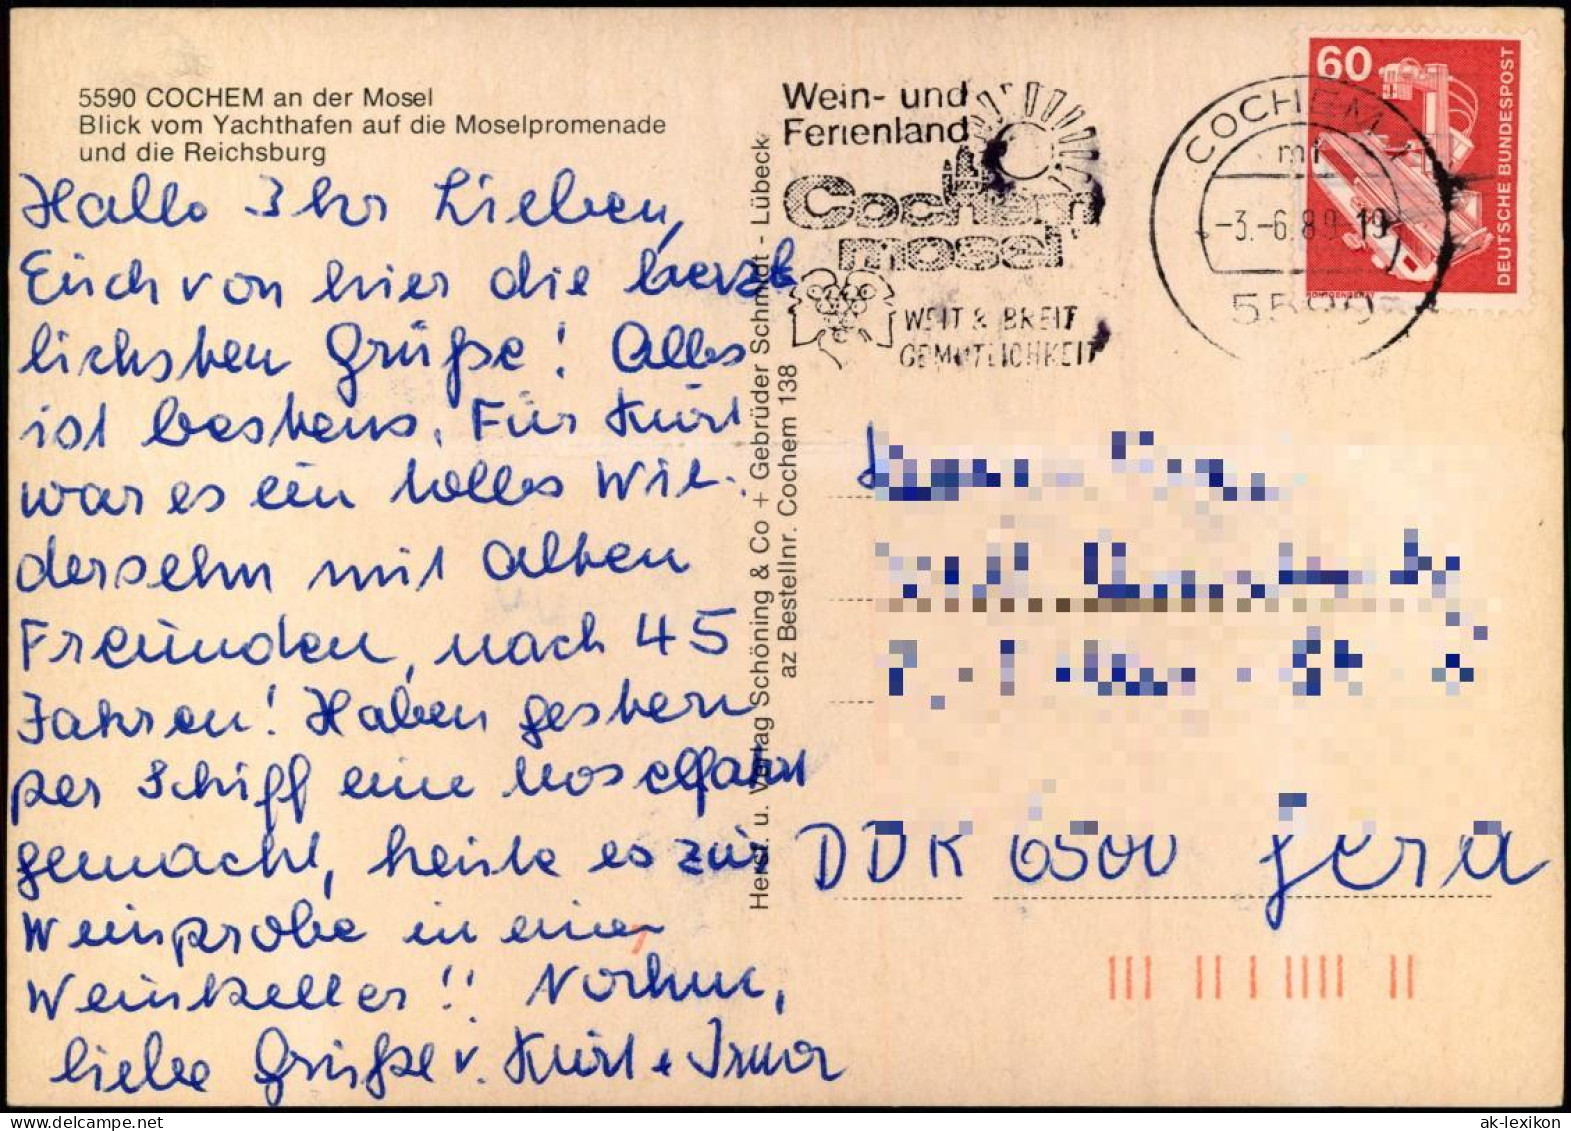 5590 COCHEM an der Mosel
Blick vom Yachthafen auf die Moselpromenade
und die Reichsburg
Hallo Ihr Lieben,
Euch von hier die herz-
lichsten Grüße! Alles
ist bestens. Für Kurt
war es ein tolles Wie-
dersehn mit alten
Freunden, nach 45
Jahren! Haben gestern
per Schiff eine Moselfahrt
gemacht, heute es zur
Weinprobe in einen
Weinkeller!!
liebe Grüße v. Kurt + Irma
Herst. u. Verlag Schöning & Co + Gebrüder Schmidt - Lübeck
az Bestellnr. Cochem 138
Wein- und
Ferienland
Cochem
mosel
WEIT & BREIT
GEMÜTLICHKEIT
COCHEM 1
mf
-3.-6.89-19
5590
60
DEUTSCHE BUNDESPOST
DDR 6500 Gera
ak-lexikon